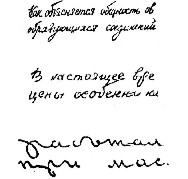 Как объясняется общность св
образующихся соединений
В настоящее вре
цены особенна ка
работал
при мас.